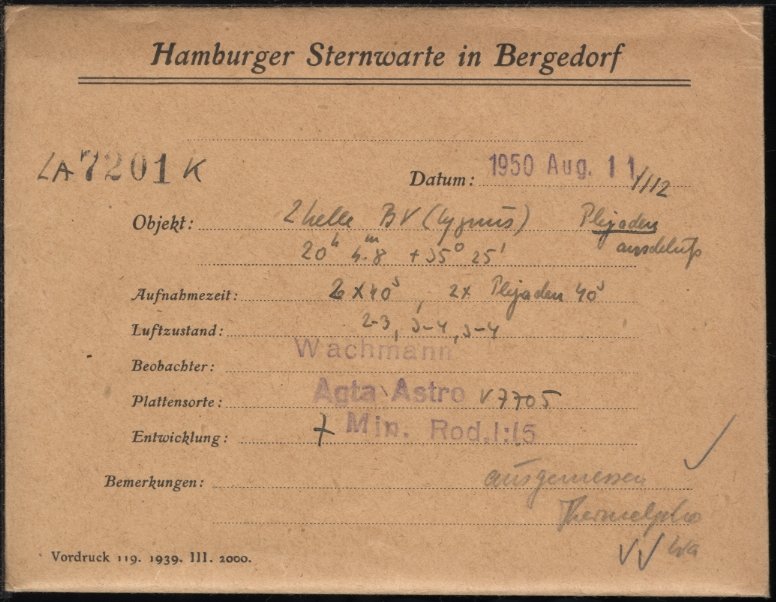 Hamburger Sternwarte in Bergedorf
LA 7201 K
Datum: 1950 Aug. 11/112
Objekt: 2 helle BV (Cygnus) Plejaden
20ʰ 4.ᵐ8 +35° 25' anschluß
Aufnahmezeit: 2x40ˢ, 2x Plejaden 40ˢ
Luftzustand: 2-3, 3-4, 3-4
Beobachter: Wachmann
Plattensorte: Agfa Astro V7705
Entwicklung: 7 Min. Rod. 1:15
Bemerkungen: ausgemessen
Vordruck 119. 1939. III. 2000.